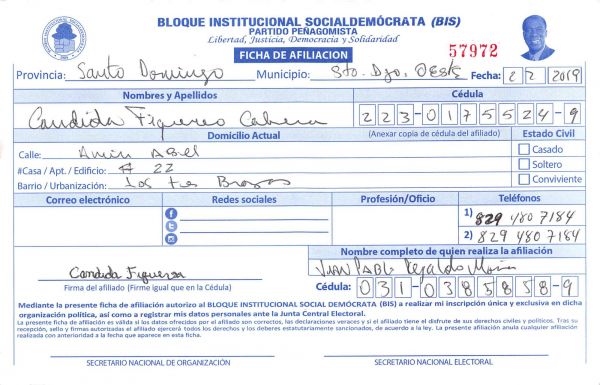 BLOQUE INSTITUCIONAL SOCIALDEMÓCRATA (BIS)
PARTIDO PEÑAGOMISTA
Libertad, Justicia, Democracia y Solidaridad
FICHA DE AFILIACION
57972
Provincia: Santo Domingo Municipio: Sto. Dgo. Oeste Fecha: 2 2 2019
Nombres y Apellidos Cédula
Candida Figuereo Cabrera 223-0175524-9
Domicilio Actual (Anexar copia de cédula del afiliado) Estado Civil
Calle: Amin Abel Casado
#Casa / Apt. / Edificio: # 22 Soltero
Barrio / Urbanización: Los tres Brazos Conviviente
Correo electrónico Redes sociales Profesión/Oficio Teléfonos
1) 829 480 7184
2) 829 480 7184
Nombre completo de quien realiza la afiliación
Juan Pablo
Candida Figuereo
Firma del afiliado (Firme igual que en la Cédula) Cédula: 031-0385858-9
Mediante la presente ficha de afiliación autorizo al BLOQUE INSTITUCIONAL SOCIAL DEMÓCRATA (BIS) a realizar mi inscripción única y exclusiva en dicha
organización política, así como a registrar mis datos personales ante la Junta Central Electoral.
La presente ficha de afiliación es válida si los datos ofrecidos por el afiliado son correctos, las declaraciones veraces y si el afiliado tiene el disfrute de sus derechos civiles y políticos. Tras su
recepción, sello y firmas autorizadas el afiliado ejercerá todos los derechos y los deberes estatutariamente sancionados, de acuerdo a la ley. La presente afiliación anula cualquier afiliación
realizada con anterioridad a la fecha que aparece en esta ficha.
SECRETARIO NACIONAL DE ORGANIZACIÓN SECRETARIO NACIONAL ELECTORAL